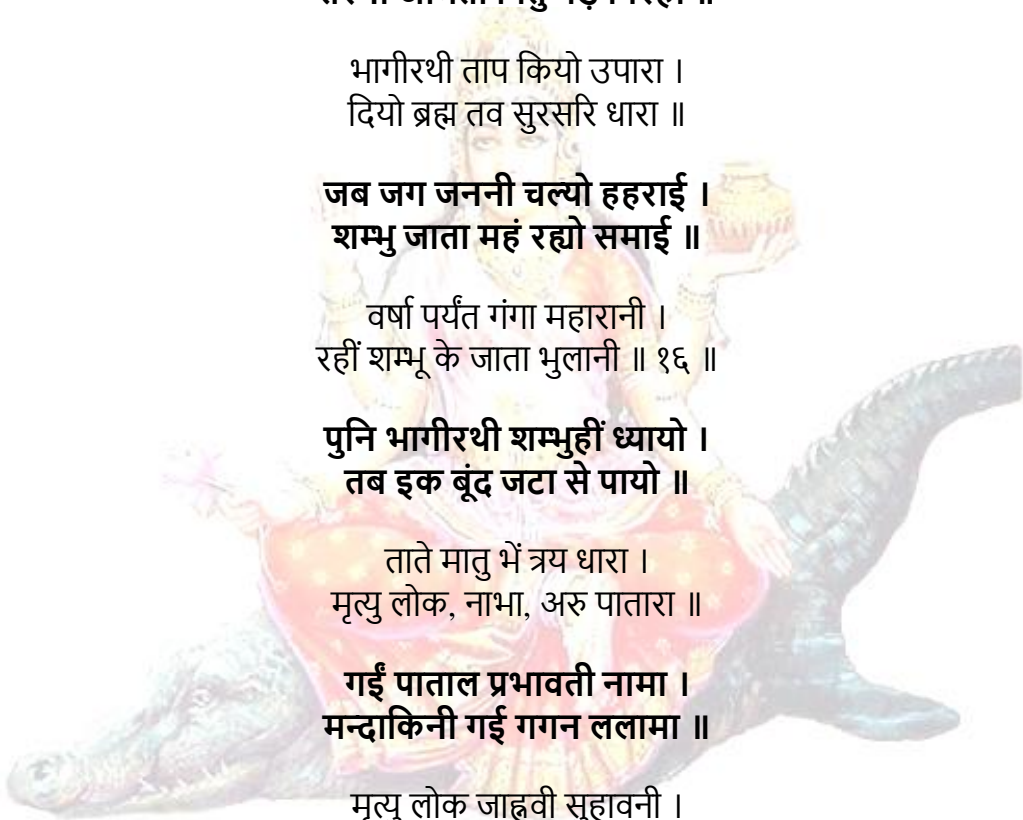 भागीरथी ताप कियो उपारा ।
दियो ब्रह्म तव सुरसरि धारा ॥
जब जग जननी चल्यो हहराई ।
शम्भु जाता महं रह्यो समाई ॥
वर्षा पर्यंत गंगा महारानी ।
रहीं शम्भू के जाता भुलानी ॥ १६ ॥
पुनि भागीरथी शम्भुहीं ध्यायो ।
तब इक बूंद जटा से पायो ॥
ताते मातु भें त्रय धारा ।
मृत्यु लोक, नाभा, अरु पातारा ॥
गईं पाताल प्रभावती नामा ।
मन्दाकिनी गई गगन ललामा ॥
मृत्यु लोक जाह्नवी सुहावनी ।